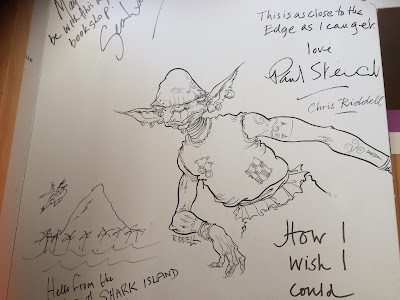 be with this
bookshop
This is as close to the
Edge as I can get
love
Paul Stewart
Chris Riddell
RIDDELL
Hello from the
SHARK ISLAND
How I
Wish I
Could